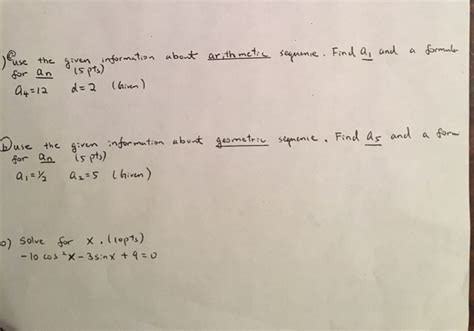 ) a use the given information about arithmetic sequence. Find a₁ and a formula
for an (5 pts)
a₄=12 d=2 (Given)
b) use the given information about geometric sequence. Find a₅ and a form
for an (5 pts)
a₁=½ a₂=5 (Given)
0) Solve for x. (10pts)
-10 cos²x-3sinx+9=0